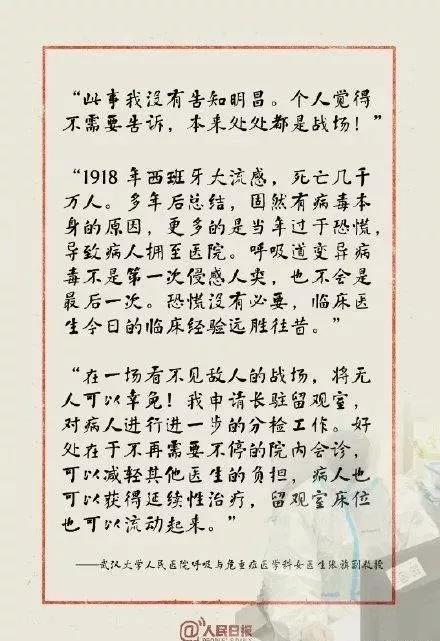 “此事我没有告知明昌。个人觉得
不需要告诉，本来处处都是战场！”
“1918 年西班牙大流感，死亡几千
万人。多年后总结，固然有病毒本
身的原因，更多的是当年过于恐慌，
导致病人拥至医院。呼吸道变异病
毒不是第一次侵感人类，也不会是
最后一次。恐慌没有必要，临床医
生今日的临床经验远胜往昔。”
“在一场看不见敌人的战场，将无
人可以幸免！我申请长驻留观室，
对病人进行进一步的分检工作。好
处在于不再需要不停的院内会诊，
可以减轻其他医生的负担，病人也
可以获得延续性治疗，留观室床位
也可以流动起来。”
——武汉大学人民医院呼吸与危重症医学科女医生张旃副教授
@人民日报
PEOPLE'S DAILY